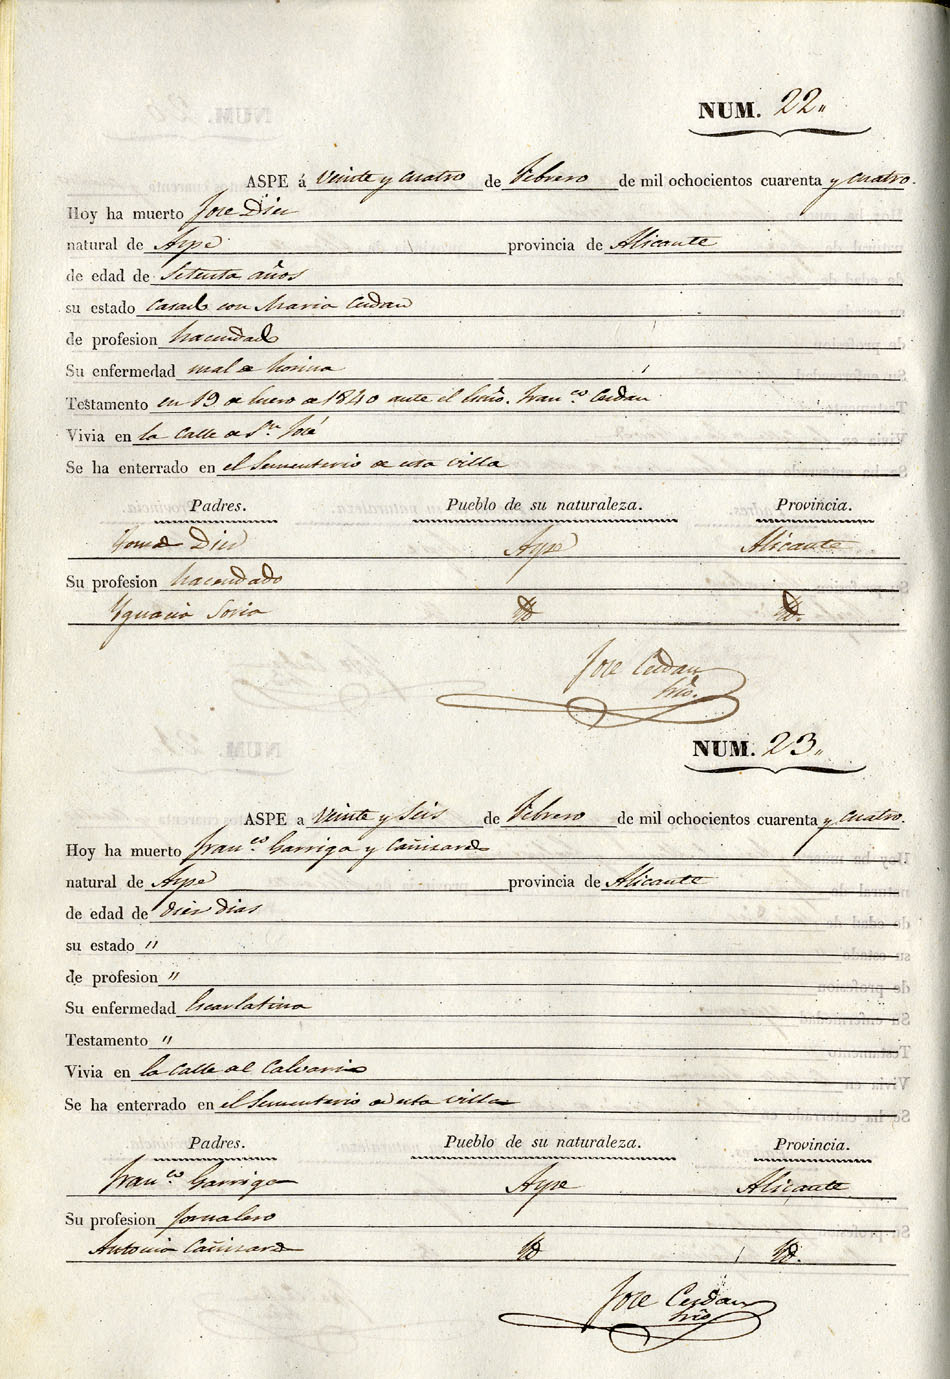 NUM. 22.
ASPE á veinte y cuatro de Febrero de mil ochocientos cuarenta y cuatro.
Hoy ha muerto Jose Dies
natural de Aspe provincia de Alicante
de edad de setenta años
su estado casado con Maria Cerdan
de profesion hacendado
Su enfermedad mal de horina
Testamento en 19 de Enero de 1840 ante el Esño. Franco Cerdan
Vivia en la Calle de Sn José
Se ha enterrado en el Sementerio de esta villa
Padres. Pueblo de su naturaleza. Provincia.
Dies Aspe Alicante
Su profesion hacendado
Ygnacia Soria Yd Yd.
Jose Cerdan
Srio.
NUM. 23.
ASPE a veinte y seis de Febrero de mil ochocientos cuarenta y cuatro.
Hoy ha muerto Franco Garriga y Cañizares
natural de Aspe provincia de Alicante
de edad de dies dias
su estado "
de profesion "
Su enfermedad Escarlatina
Testamento "
Vivia en la Calle del Calvario
Se ha enterrado en el Sementerio de esta villa
Padres. Pueblo de su naturaleza. Provincia.
Franco Garriga Aspe Alicante
Su profesion Jornalero
Antonia Cañizares Yd Yd.
Jose Cerdan
Srio